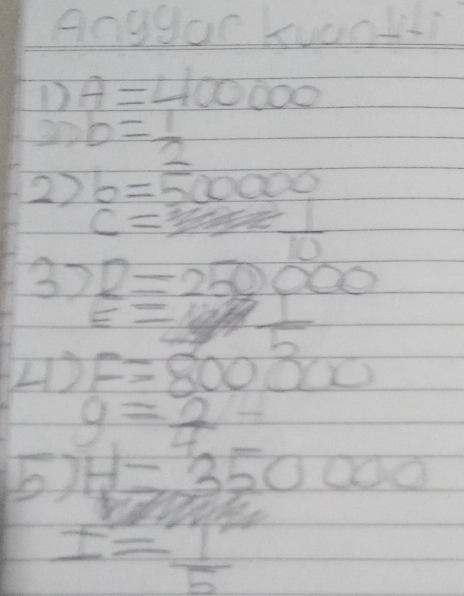 Anggar kuantiti
1) A = 400 000
b = 1/2
2) b = 500000
c = 1/10
3) D = 250 000
E = 1/5
4) F = 800 000
g = 2/4
5) H = 350 000
I = 1/5